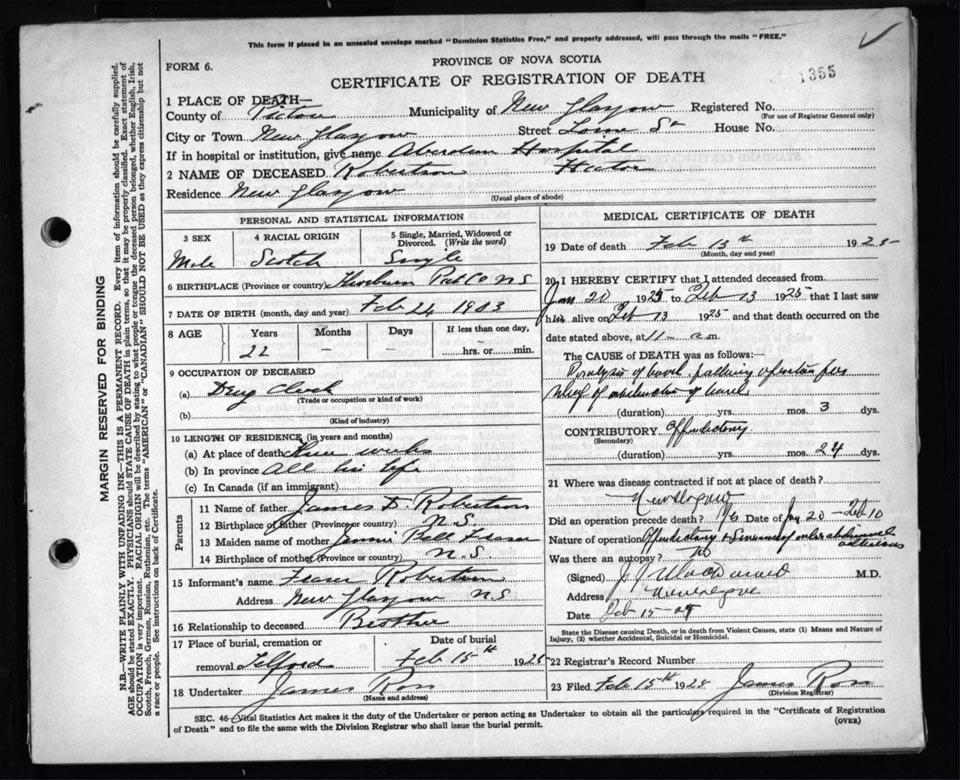 This form if placed in an unsealed envelope marked "Dominion Statistics Free," and properly addressed, will pass through the mails "FREE."
FORM 6.
PROVINCE OF NOVA SCOTIA
CERTIFICATE OF REGISTRATION OF DEATH
1355
1 PLACE OF DEATH—
County of Pictou Municipality of New Glasgow Registered No.
(For use of Registrar General only)
City or Town New Glasgow Street Lorne St House No.
If in hospital or institution, give name Aberdeen Hospital
2 NAME OF DECEASED Robertson Hector
Residence New Glasgow
(Usual place of abode)
PERSONAL AND STATISTICAL INFORMATION
3 SEX 4 RACIAL ORIGIN 5 Single, Married, Widowed or Divorced. (Write the word)
Male Scotch Single
6 BIRTHPLACE (Province or country) Thorburn Pict Co N S
7 DATE OF BIRTH (month, day and year) Feb 24 1903
8 AGE Years Months Days If less than one day,
22 – – hrs. or min.
9 OCCUPATION OF DECEASED
(a) Drug Clerk
(Trade or occupation or kind of work)
(b)
(Kind of industry)
10 LENGTH OF RESIDENCE (in years and months)
(a) At place of death weeks
(b) In province All his life
(c) In Canada (if an immigrant)
Parents
11 Name of father James D. Robertson
12 Birthplace of father (Province or country) N.S.
13 Maiden name of mother Jennie Bell Fraser
14 Birthplace of mother (Province or country) N.S.
15 Informant's name Fraser Robertson
Address New Glasgow N S
16 Relationship to deceased Brother
17 Place of burial, cremation or removal Telford Date of burial Feb 15th 1925
18 Undertaker James Ross
(Name and address)
MEDICAL CERTIFICATE OF DEATH
19 Date of death Feb 13th 1925
(Month, day and year)
20 I HEREBY CERTIFY that I attended deceased from
Jan 20 1925 to Feb 13 1925 that I last saw
him alive on Feb 13 1925 and that death occurred on the
date stated above, at 11 a.m.
The CAUSE OF DEATH was as follows:
Paralysis of bowel following operation for
relief of obstruction of bowel
(duration) yrs. mos. 3 dys.
CONTRIBUTORY Appendectomy
(Secondary)
(duration) yrs. mos. 24 dys.
21 Where was disease contracted if not at place of death?
New Glasgow
Did an operation precede death? Yes Date of Jan 20 – Feb 10
Nature of operation Appendectomy & abdominal adhesions
Was there an autopsy? No
(Signed) M.D.
Address New Glasgow
Date Feb 15-25
State the Disease causing Death, or in death from Violent Causes, state (1) Means and Nature of Injury, (2) whether Accidental, Suicidal or Homicidal.
22 Registrar's Record Number
23 Filed Feb 15th 1925 James Ross
(Division Registrar)
SEC. 46—Vital Statistics Act makes it the duty of the Undertaker or person acting as Undertaker to obtain all the particulars required in the "Certificate of Registration
of Death" and to file the same with the Division Registrar who shall issue the burial permit.
(OVER)
MARGIN RESERVED FOR BINDING
N.B.—WRITE PLAINLY WITH UNFADING INK—THIS IS A PERMANENT RECORD. Every item of information should be carefully supplied.
AGE should be stated EXACTLY. PHYSICIANS should STATE CAUSE OF DEATH in plain terms, so that it may be properly classified. Exact statement of
OCCUPATION is very important. RACIAL ORIGIN will be described by stating to what people or tongue the deceased person belonged, whether English, Irish,
Scotch, French, German, Russian, Ruthenian, etc. The terms "AMERICAN" or "CANADIAN" SHOULD NOT BE USED as they express citizenship but not
a race or people. See instructions on back of Certificate.